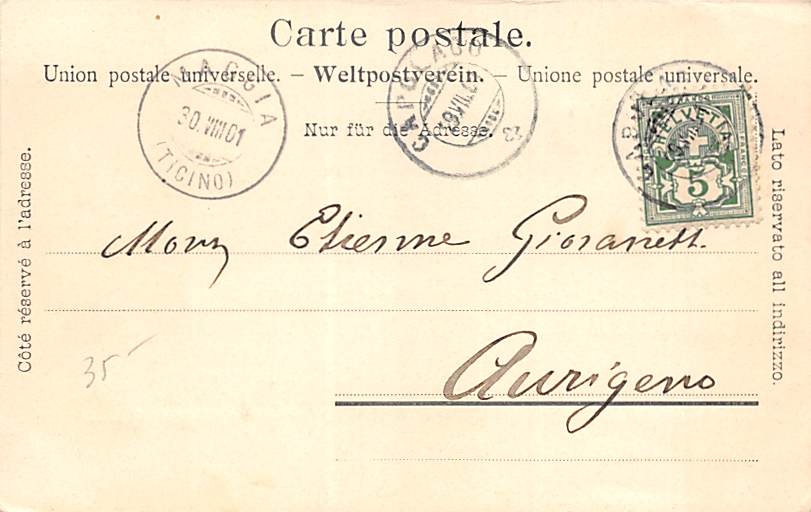 Carte postale.
Union postale universelle. – Weltpostverein. – Unione postale universale.
Nur für die Adresse.
MAGGIA
30.VIII.01
(TICINO)
CAPOLAGO
HELVETIA
FRANCO
5
Côté réservé à l'adresse.
Lato riservato all indirizzo.
Etienne
Aurigeno
35